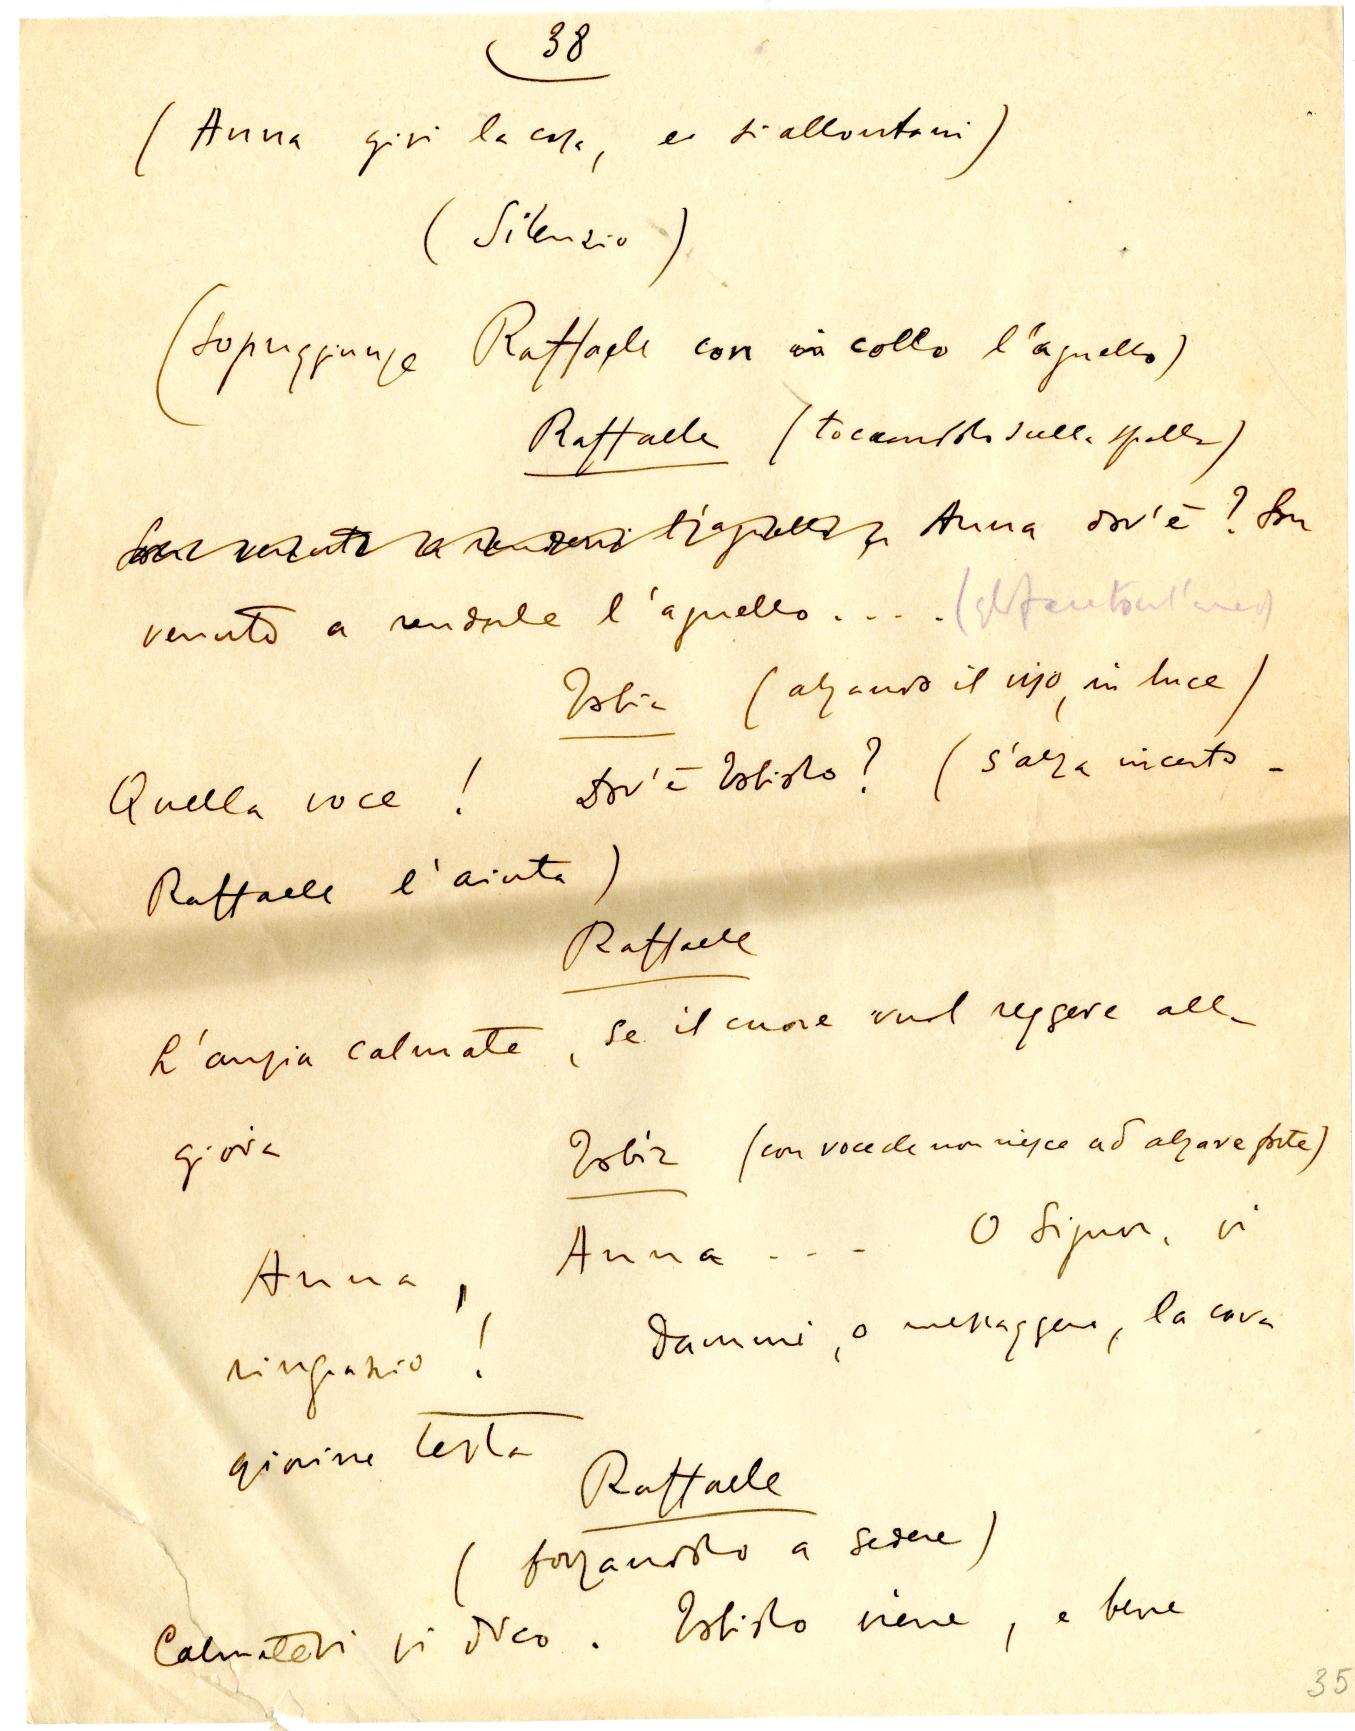 38
(Anna giri la casa, e si allontani)
(Silenzio)
(Sopraggiunge Raffaele con in collo l'agnello)
Raffaele (toccandolo sulla spalla)
Son venuto a rendervi l'agnello, Anna dov'è? Son
venuto a renderle l'agnello....
Tobia (alzando il viso, in luce)
Quella voce! Dov'è Tobiolo? (s'alza incerto -
Raffaele l'aiuta)
Raffaele
L'ansia calmate, se il cuore vuol reggere alla
gioia
Tobia (con voce che non riesce ad alzare forte)
Anna, Anna... O Signor, vi
ringrazio! Dammi, o messaggero, la cara
giovine testa
Raffaele
(forzandolo a sedere)
Calmatevi vi dico. Tobiolo viene, e bene
35